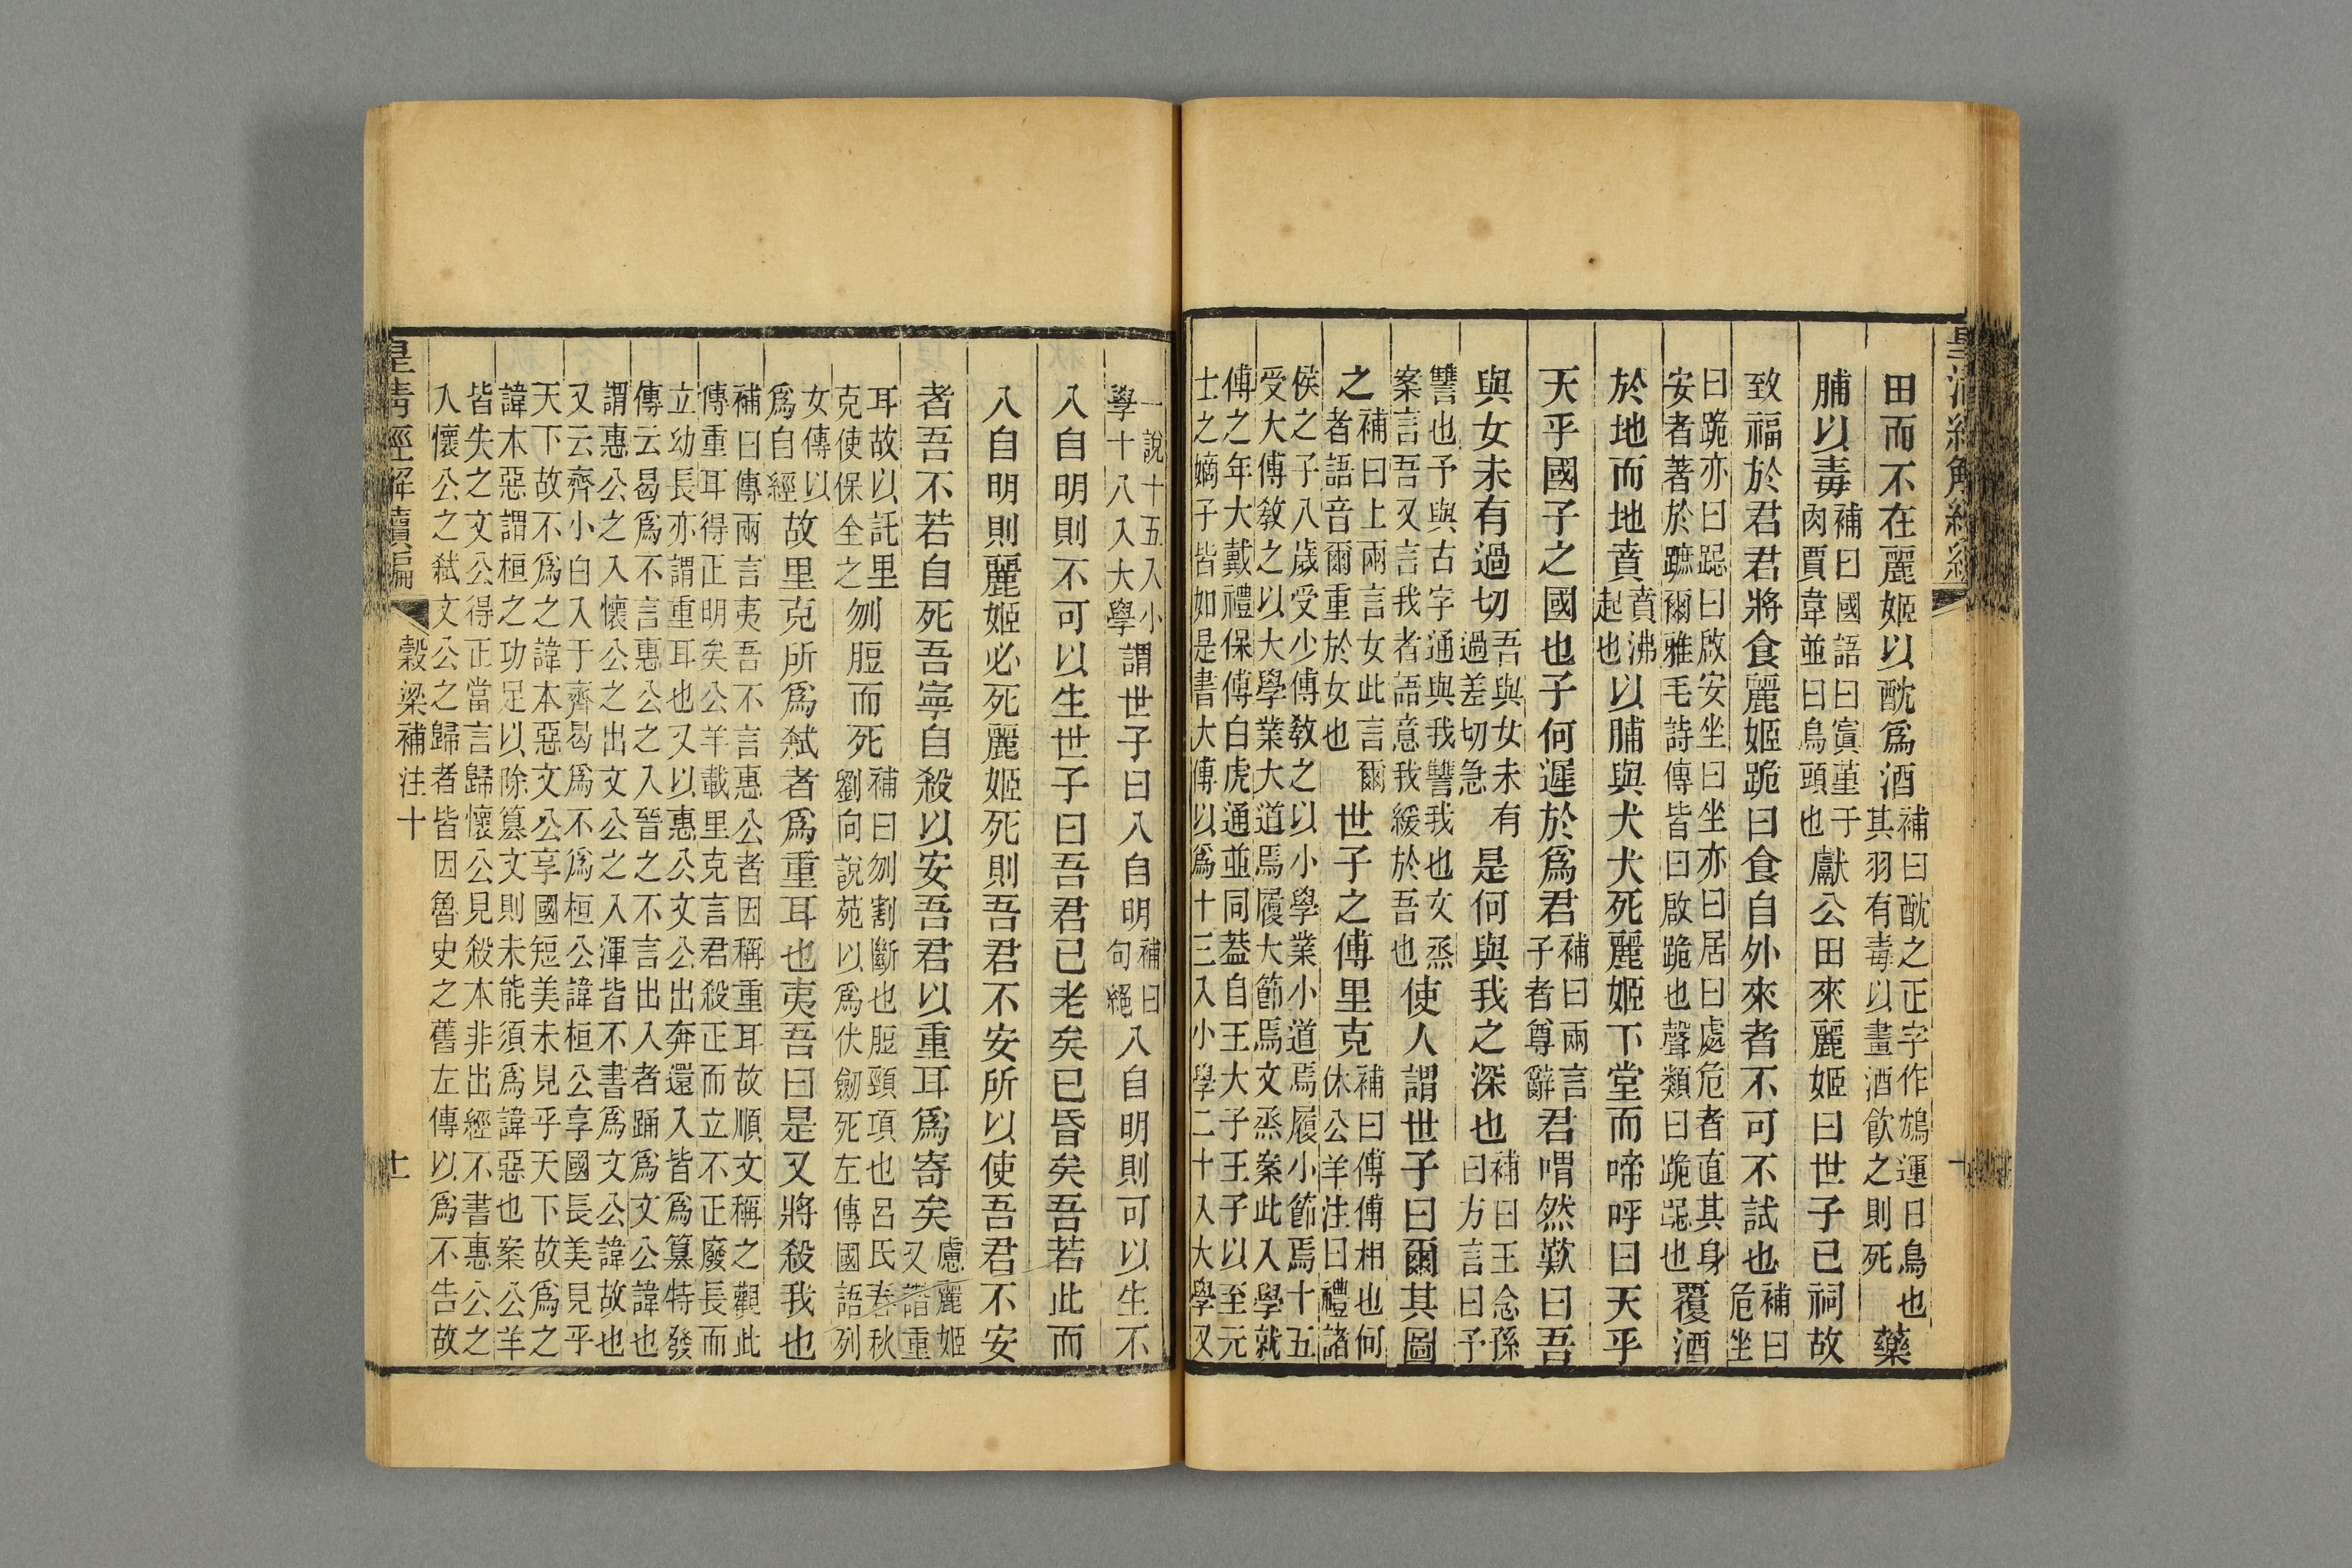 皇清經解續編
田而不在麗姬以酖爲酒補曰酖之正字作鴆運日鳥也其羽有毒以畫酒飮之則死藥
脯以毒補曰國語曰寘菫于肉賈韋並曰烏頭也獻公田來麗姬曰世子已祠故
致福於君君將食麗姬跪曰食自外來者不可不試也補曰危坐
曰跪亦曰跽曰啟安坐曰坐亦曰居曰處危者直其身
安者著於蹠爾雅毛詩傳皆曰啟跪也聲類曰跪跽也覆酒
於地而地賁賁沸起也以脯與犬犬死麗姬下堂而啼呼曰天乎
天乎國子之國也子何遲於爲君補曰兩言子者尊辭君喟然歎曰吾
與女未有過切吾與女未有過差切急是何與我之深也補曰王念孫曰方言曰予
讐也予與古字通與我讐我也女烝
案言吾又言我者語意我緩於吾也使人謂世子曰爾其圖
之補曰上兩言女此言爾者語音爾重於女也世子之傅里克補曰傅傅相也何休公羊注曰禮諸
侯之子八歲受少傅敎之以小學業小道焉履小節焉十五
受大傅敎之以大學業大道焉履大節焉文烝案此入學就
傅之年大戴禮保傅白虎通並同葢自王大子王子以至元
士之嫡子皆如是書大傳以爲十三入小學二十入大學又
一說十五入小學十八入大學謂世子曰入自明補曰句絕入自明則可以生不
入自明則不可以生世子曰吾君已老矣已昏矣吾若此而
入自明則麗姬必死麗姬死則吾君不安所以使吾君不安
者吾不若自死吾寧自殺以安吾君以重耳爲寄矣慮麗姬又譖重
耳故以託里克使保全之刎脰而死補曰刎割斷也脰頸項也呂氏春秋劉向說苑以爲伏劒死左傳國語列
女傳以爲自經故里克所爲弒者爲重耳也夷吾曰是又將殺我也
補曰傳兩言夷吾不言惠公者因稱重耳故順文稱之觀此
傳重耳得正明矣公羊載里克言君殺正而立不正廢長而
立幼長亦謂重耳也又以惠公文公出奔還入皆爲篡特發
傳云曷爲不言惠公之入晉之不言出入者踊爲文公諱也
謂惠公之入懷公之出文公之入渾皆不書爲文公諱故也
又云齊小白入于齊曷爲不爲桓公諱桓公享國長美見乎
天下故不爲之諱本惡文公享國短美未見乎天下故爲之
諱本惡謂桓之功足以除篡文則未能須爲諱惡也案公羊
皆失之文公得正當言歸懷公見殺本非出經不書惠公之
入懷公之弒文公之歸者皆因魯史之舊左傳以爲不告故
皇清經解續編 穀梁補注十 十一